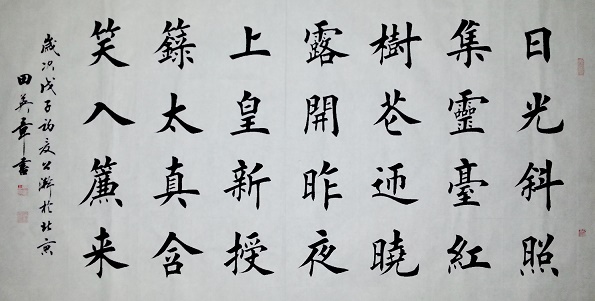 日光斜照
集靈臺紅
樹花迎曉
露開昨夜
上皇新授
籙太真含
笑入簾来
歲次戊子初夏澣於北京
田英章書